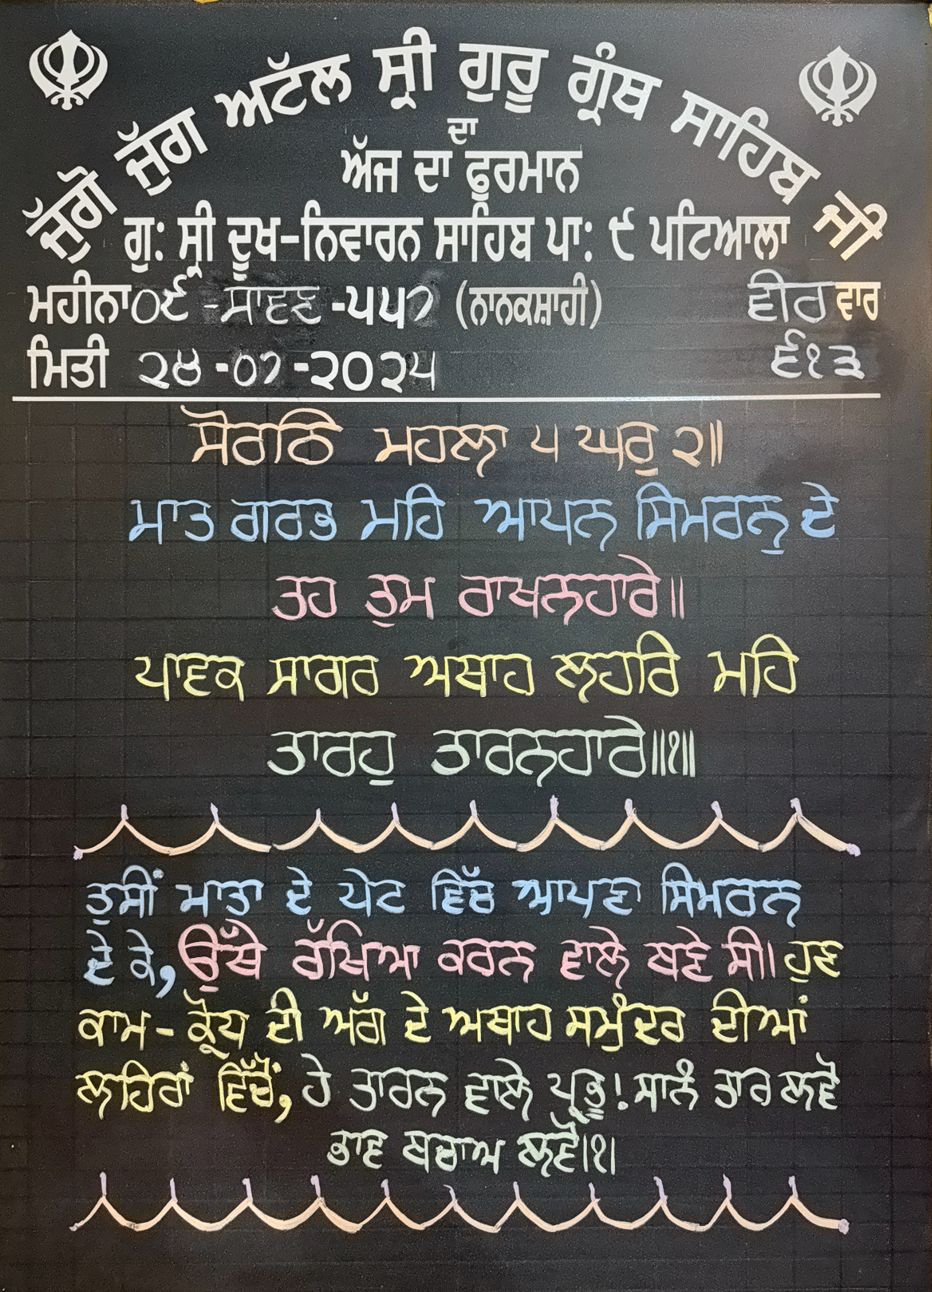 ਜੁੱਗੋ ਜੁੱਗ ਅਟੱਲ ਸ੍ਰੀ ਗੁਰੂ ਗ੍ਰੰਥ ਸਾਹਿਬ ਜੀ
ਦਾ
ਅੱਜ ਦਾ ਫੁਰਮਾਨ
ਗੁ: ਸ੍ਰੀ ਦੂਖ-ਨਿਵਾਰਨ ਸਾਹਿਬ ਪਾ: ੯ ਪਟਿਆਲਾ
ਮਹੀਨਾ ੦੯ -ਸਾਵਣ -੫੫੭ (ਨਾਨਕਸ਼ਾਹੀ) ਵੀਰ ਵਾਰ
ਮਿਤੀ ੨੪ -੦੭ -੨੦੨੫ ੬੧੩
ਸੋਰਠਿ ਮਹਲਾ ੫ ਘਰੁ ੨॥
ਮਾਤ ਗਰਭ ਮਹਿ ਆਪਨ ਸਿਮਰਨੁ ਦੇ
ਤਹ ਤੁਮ ਰਾਖਨਹਾਰੇ॥
ਪਾਵਕ ਸਾਗਰ ਅਥਾਹ ਲਹਰਿ ਮਹਿ
ਤਾਰਹੁ ਤਾਰਨਹਾਰੇ॥੧॥
ਤੁਸੀਂ ਮਾਤਾ ਦੇ ਪੇਟ ਵਿੱਚ ਆਪਣਾ ਸਿਮਰਨ
ਦੇ ਕੇ, ਉੱਥੇ ਰੱਖਿਆ ਕਰਨ ਵਾਲੇ ਬਣੇ ਸੀ। ਹੁਣ
ਕਾਮ-ਕ੍ਰੋਧ ਦੀ ਅੱਗ ਦੇ ਅਥਾਹ ਸਮੁੰਦਰ ਦੀਆਂ
ਲਹਿਰਾਂ ਵਿੱਚੋਂ, ਹੇ ਤਾਰਨ ਵਾਲੇ ਪ੍ਰਭੂ! ਸਾਨੂੰ ਤਾਰ ਲਵੋ
ਭਾਵ ਬਚਾਅ ਲਵੋ।੧।